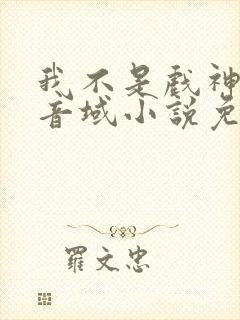 我不是戲神
音域小說免
羅文忠